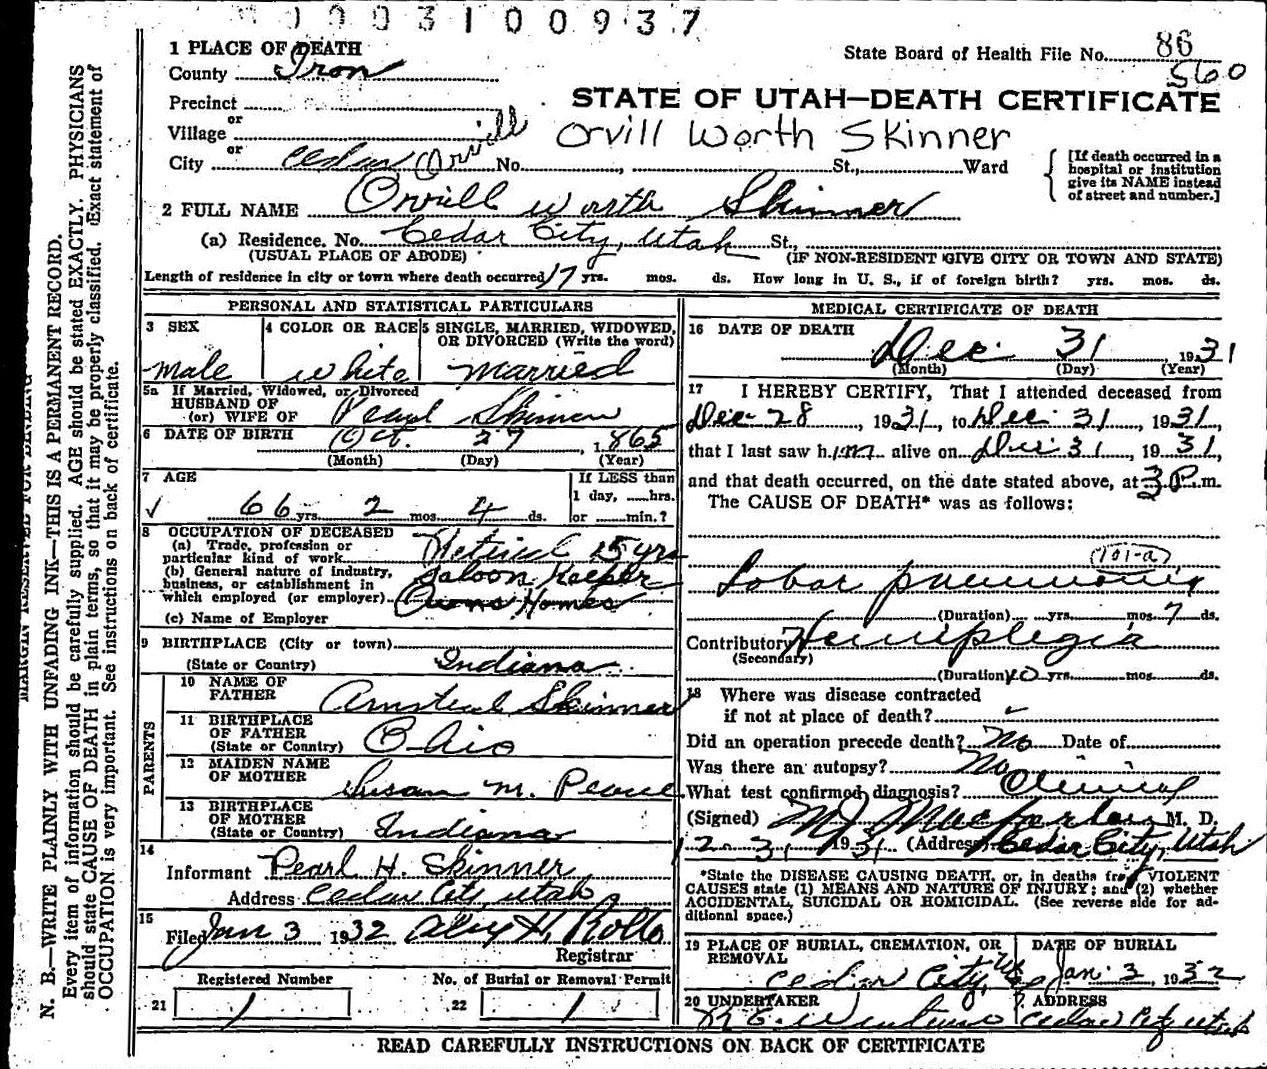 0 0 0 3 1 0 0 9 3 7
1 PLACE OF DEATH
County Iron
Precinct
or
Village
or
City Cedar Orvill No. St., Ward
State Board of Health File No. 86
560
STATE OF UTAH—DEATH CERTIFICATE
Orvill Worth Skinner
[If death occurred in a
hospital or institution
give its NAME instead
of street and number.]
2 FULL NAME Orvill Worth Skinner
(a) Residence. No. Cedar City, Utah St.,
(USUAL PLACE OF ABODE) (IF NON-RESIDENT GIVE CITY OR TOWN AND STATE)
Length of residence in city or town where death occurred 17 yrs. mos. ds. How long in U. S., if of foreign birth? yrs. mos. ds.
PERSONAL AND STATISTICAL PARTICULARS
3 SEX
male
4 COLOR OR RACE
white
5 SINGLE, MARRIED, WIDOWED,
OR DIVORCED (Write the word)
married
5a If Married, Widowed, or Divorced
HUSBAND OF
(or) WIFE OF Pearl Skinner
6 DATE OF BIRTH Oct. 27, 1865
(Month) (Day) (Year)
7 AGE
66 yrs. 2 mos. 4 ds.
If LESS than
1 day, hrs.
or min.?
8 OCCUPATION OF DECEASED
(a) Trade, profession or
particular kind of work Retired 25 yrs
(b) General nature of industry,
business, or establishment in
which employed (or employer) Saloon Keeper
Owns Homes
(c) Name of Employer
9 BIRTHPLACE (City or town)
(State or Country) Indiana
PARENTS
10 NAME OF
FATHER Amstead Skinner
11 BIRTHPLACE
OF FATHER
(State or Country) Ohio
12 MAIDEN NAME
OF MOTHER Susan M. Pearce
13 BIRTHPLACE
OF MOTHER
(State or Country) Indiana
14
Informant Pearl H. Skinner
Address Cedar City, Utah
15
Filed Jan 3 1932 Alex H. Rollo
Registrar
Registered Number
21 1
No. of Burial or Removal Permit
22 1
MEDICAL CERTIFICATE OF DEATH
16 DATE OF DEATH
Dec 31, 1931
(Month) (Day) (Year)
17 I HEREBY CERTIFY, That I attended deceased from
Dec 28, 1931, to Dec. 31, 1931,
that I last saw him alive on Dec 31, 1931,
and that death occurred, on the date stated above, at 3 P.m.
The CAUSE OF DEATH* was as follows:
101-a
Lobar pneumonia
(Duration) yrs. mos. 7 ds.
Contributory Hemiplegia
(Secondary)
(Duration) 40 yrs. mos. ds.
18 Where was disease contracted
if not at place of death?
Did an operation precede death? No Date of
Was there an autopsy? No
What test confirmed diagnosis? Clinical
(Signed) M J Macfarlane M. D.
12 31 1931 (Address) Cedar City, Utah
*State the DISEASE CAUSING DEATH, or, in deaths from VIOLENT
CAUSES state (1) MEANS AND NATURE OF INJURY; and (2) whether
ACCIDENTAL, SUICIDAL OR HOMICIDAL. (See reverse side for ad-
ditional space.)
19 PLACE OF BURIAL, CREMATION, OR
REMOVAL
Cedar City,
DATE OF BURIAL
Jan. 3, 1932
20 UNDERTAKER
ADDRESS
Cedar City Utah
READ CAREFULLY INSTRUCTIONS ON BACK OF CERTIFICATE
MARGIN RESERVED FOR BINDING
N. B.—WRITE PLAINLY WITH UNFADING INK—THIS IS A PERMANENT RECORD.
Every item of information should be carefully supplied. AGE should be stated EXACTLY. PHYSICIANS
should state CAUSE OF DEATH in plain terms, so that it may be properly classified. Exact statement of
OCCUPATION is very important. See instructions on back of certificate.